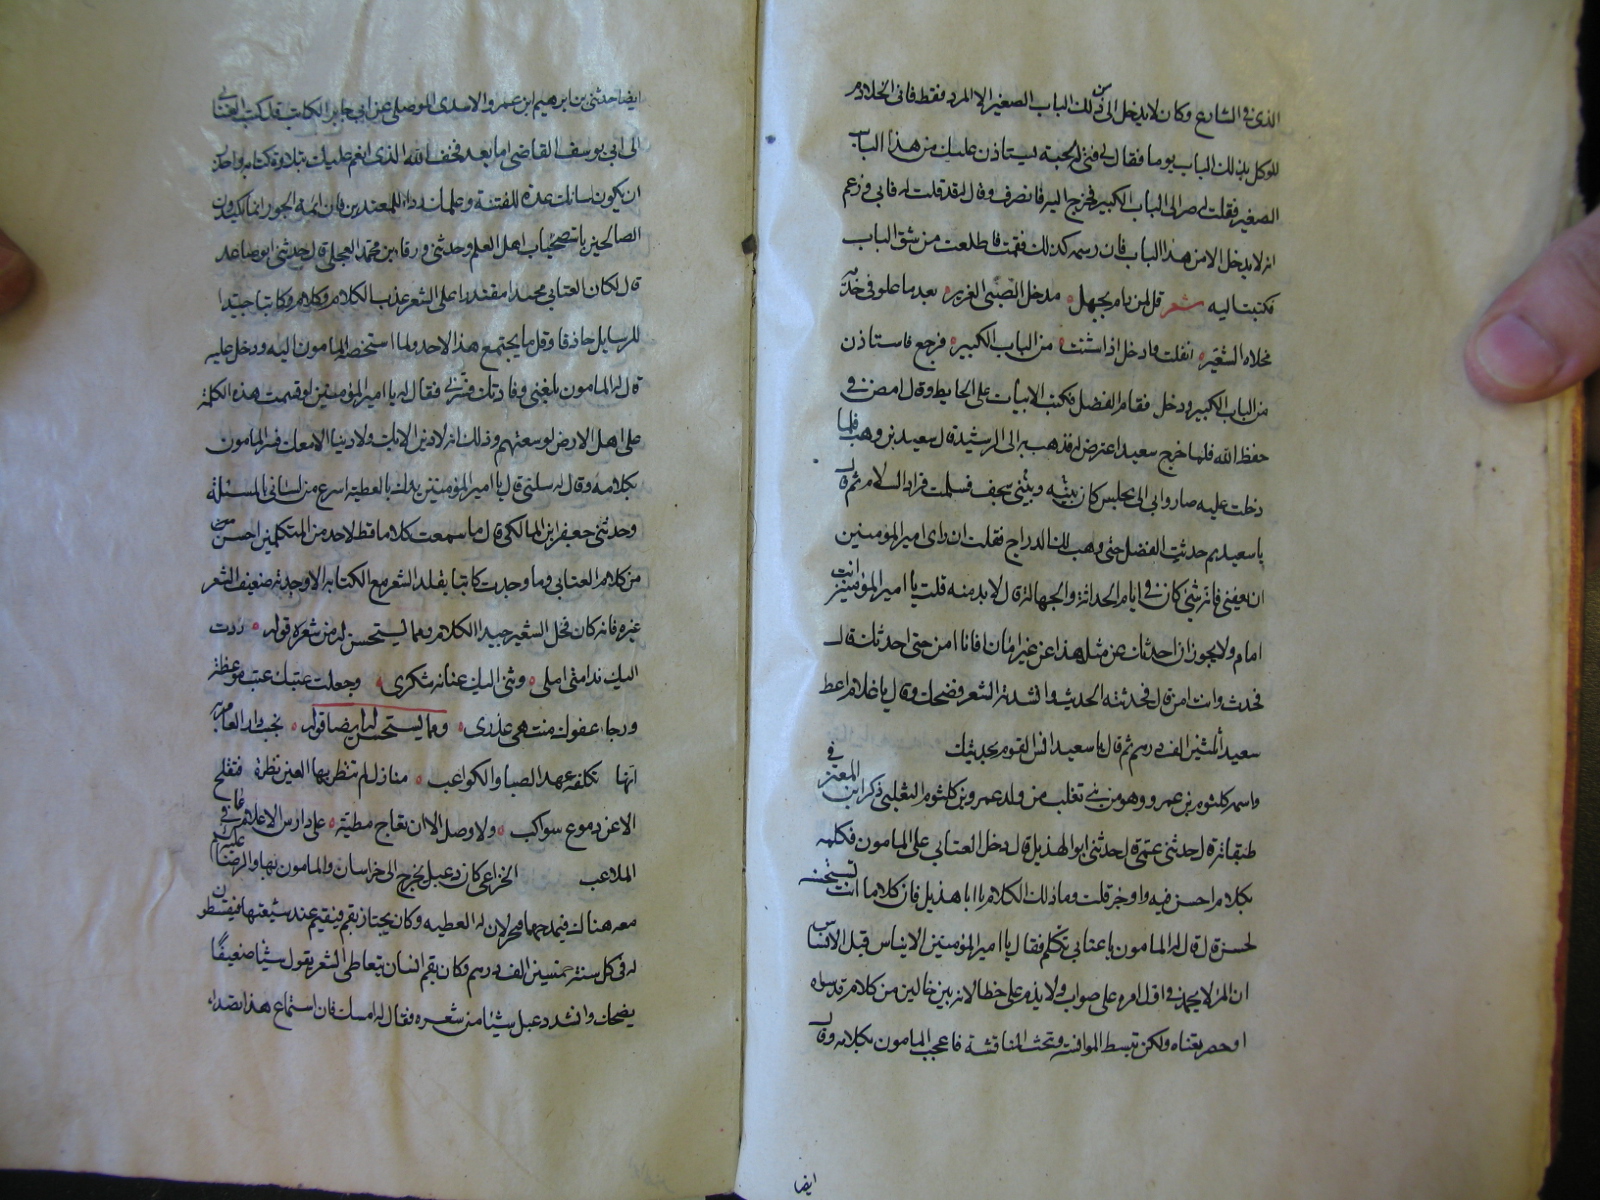 الذى فى الشارع وكان لا يدخل الى من ذلك الباب الصغير الا المرد فقط فاتى الخلادم
للوكل بذلك الباب يوما فقال لى فتى لحية يستاذن عليك من هذا الباب
الصغير فقلت له صر الى الباب الكبير فخرج اليه فانصرف وقال لقد قلت له فابى وزعم
انه لا يدخل الا من هذا الباب فان رسمه كذلك فقمت فاطلعت من شق الباب
فكتبت اليه شعر قل لمن رام بجهل مدخل الصبى الغرير بعد ما علو فى خديه
مخلاة الشعير انفلت وادخل اذا شئت من الباب الكبير فرجع فاستاذن
من الباب الكبير ودخل فقام الفضل فكتب الابيات على الحايط وقال امض فى
حفظ الله فلما خرج سعيد اعترض له فذهب به الى الرشيد قال سعيد بن وهب فلما
دخلت عليه صار وابى الى مجلس كان بينه وبينى سجف فسلمت فراد السلام ثم قال
يا سعيد بم حدثت الفضل حتى وهب لك الدراج فقلت ان راى امير المومنين
ان يعفينى فانه شئ كان فى ايام الحداثة والجهالة قال لابد منه قلت يا امير المؤمنين انت
امام ولا يجوز ان احدثك عن مثل هذا عن غير امان افانا امن حتى احدثك قال
فحدث وانت امن قال فحدثته الحديث وانشدته الشعر فضحك وقال يا غلام اعط
سعيد المثنين الف درهم ثم قال يا سعيد انس القوم بحديثك
واسمه كلثوم بن عمرو وهو من بنى تغلب من ولد عمرو بن كلثوم التغلبى ذكر ابن المعتز فى
طبقاته قال حدثنى عمى قال حدثنى ابو الهذيل قال دخل العتابى على المامون فكلمه
بكلام احسن فيه واوجز قلت وما ذلك الكلام يا ابا هذيل فان كلاما انت تستحسنه
لحسن قال قال له المامون يا عتابى تكلم فقال يا امير المؤمنين الايناس قبل الابساس
ان المرء لا يحمد فى اول امره على صواب ولا يذم على خطا لانه بين حالين من كلام قد سواه
او حصر بغناه ولكن تبسط المواقف وتحث المناقشة فاعجب المامون بكلامه وقال
ايضا
ايضا حدثنى بن ابرهيم ابن عمرو الاسدى الموصلى عن ابى جابر الكاتب قد كتب العتابى
الى ابى يوسف القاضى اما بعد فخف الله الذى انعم عليك بتلاوة كتابه واحذر
ان يكون لسانك عدة للفتنة وعلمك ردا للمعتدين فان ائمة الجور انما يكيدون
الصالحين باستصحاب اهل العلم وحدثنى ورقاء بن محمد العجلى قال حدثنى ابو صاعد
قال كان العتابى مجيدا مقتدرا على الشعر عذب الكلام وكلام وكاتبا جيدا
للرسايل حاذقا وقل ما يجتمع هذا لاحد ولما استخصه المامون اليه ودخل عليه
قال له المامون بلغنى وفادتك فسرنى فقال له يا امير المؤمنين لو قسمت هذه الكلمة
على اهل الارض لوسعتهم وذلك انه لا دين الا بك ولا دنيا الا معك فسر المامون
بكلامه وقال له سلنى قال يا امير المؤمنين يدك بالعطية اسرع من لسانى بالمسئلة
وحدثنى جعفر ابن المالكى قال ما سمعت كلاما قط لاحد من المتكلمين احسن من
من كلام العتابى وما وجدت كاتبا يقلد الشعر مع الكتابة الا وجدته ضعيف الشعر
غيره فانه كان فحل الشعر جيد الكلام ومما يستحسن له من شعره قوله رددت
اليك ندامتى املى وثنى اليك عنانه شكرى وجعلت عتبك عتب موعظة
ورجاء عفوك منتهى عذرى ومما يستحسن له ايضا قوله
انها تكلفه عهد الصبا والكواعب منازل لم تنظر بها العين نظرة فتقلع
الا عن دموع سواكب ولا وصل الا ان تعاج مطية على دارس الاعلام عافى
الملاعب الخزاعى كان دعبل يخرج الى خراسان والمامون بها والرضا عليه السلام
معه هنالك فيمدحهما فيجزلان له العطيه وكان يجتاز بقم فيقيم عند شيعتها فيقسطون
له فى كل سنة خمسين الف درهم وكان بقم انسان يتعاطى الشعر يقول شيئا ضعيفا
يضحك وانشد دعبل شيئا من شعره فقال له امسك فان استماع هذا بصداء